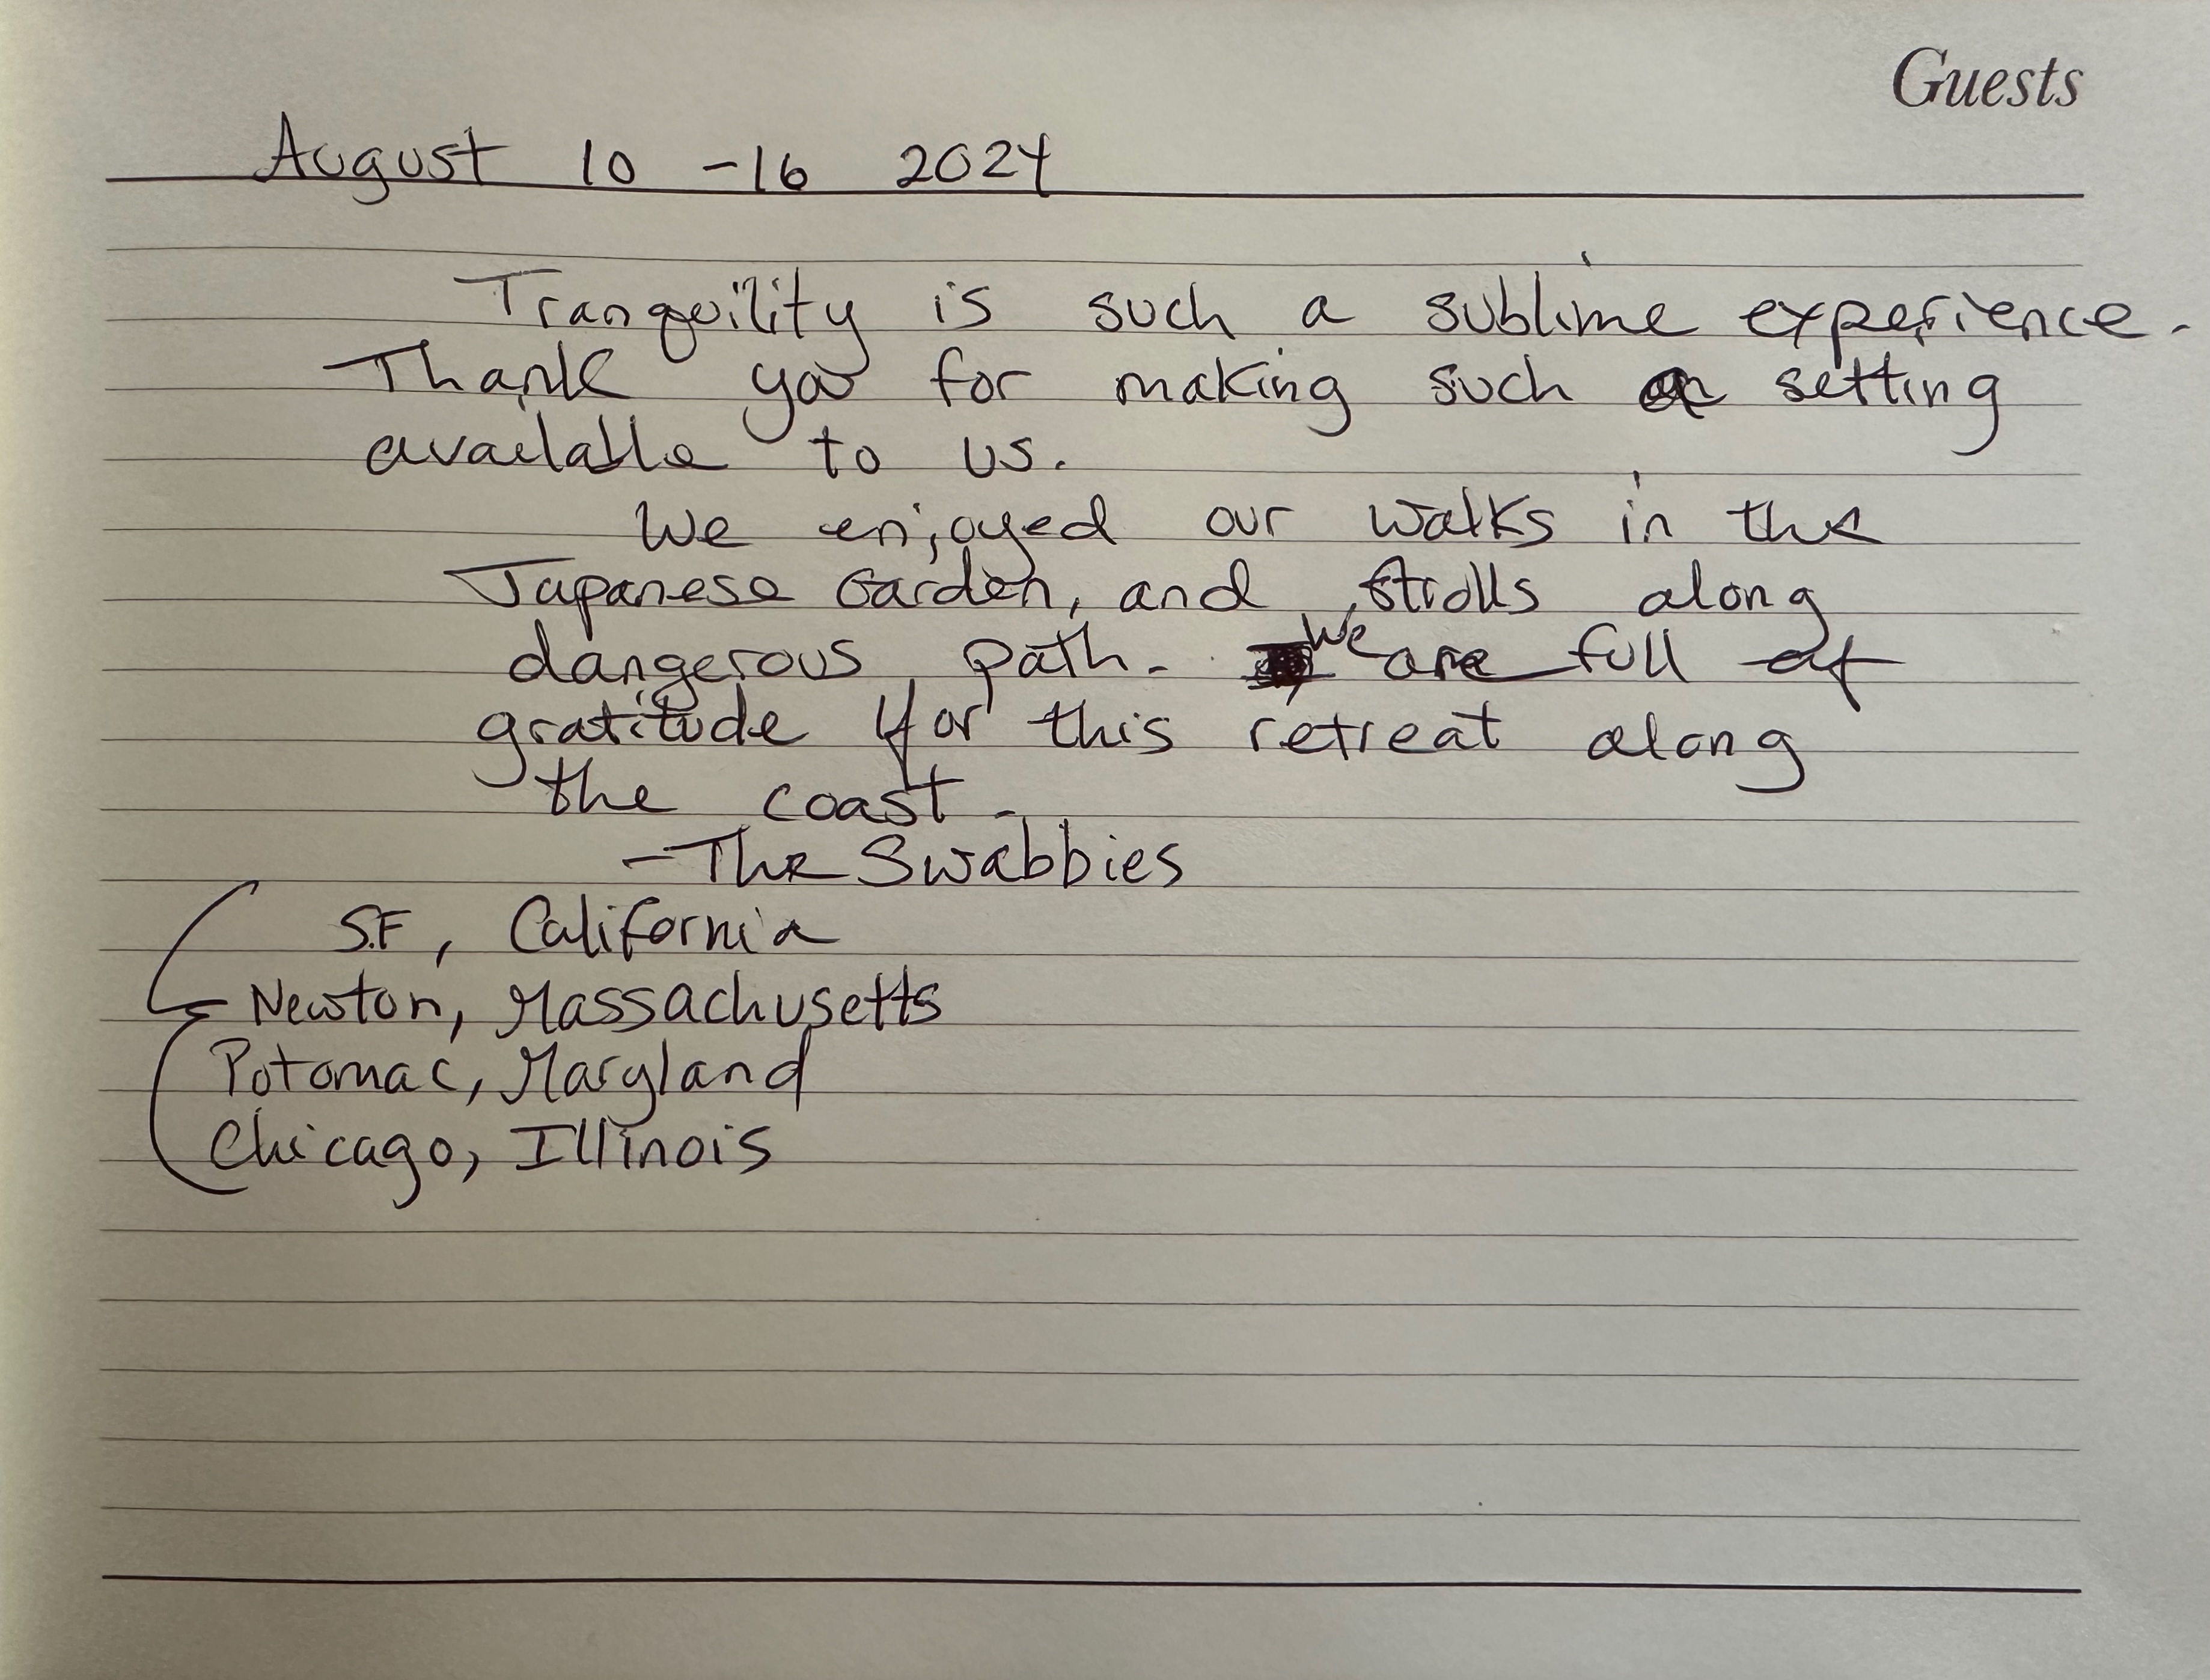 Guests
August 10 - 16 2024
Tranquility is such a sublime experience.
Thank you for making such a setting
available to us.
We enjoyed our walks in the
Japanese Garden, and strolls along
dangerous path. We are full of
gratitude for this retreat along
the coast.
- The Swabbies
S.F, California
Newton, Massachusetts
Potomac, Maryland
Chicago, Illinois